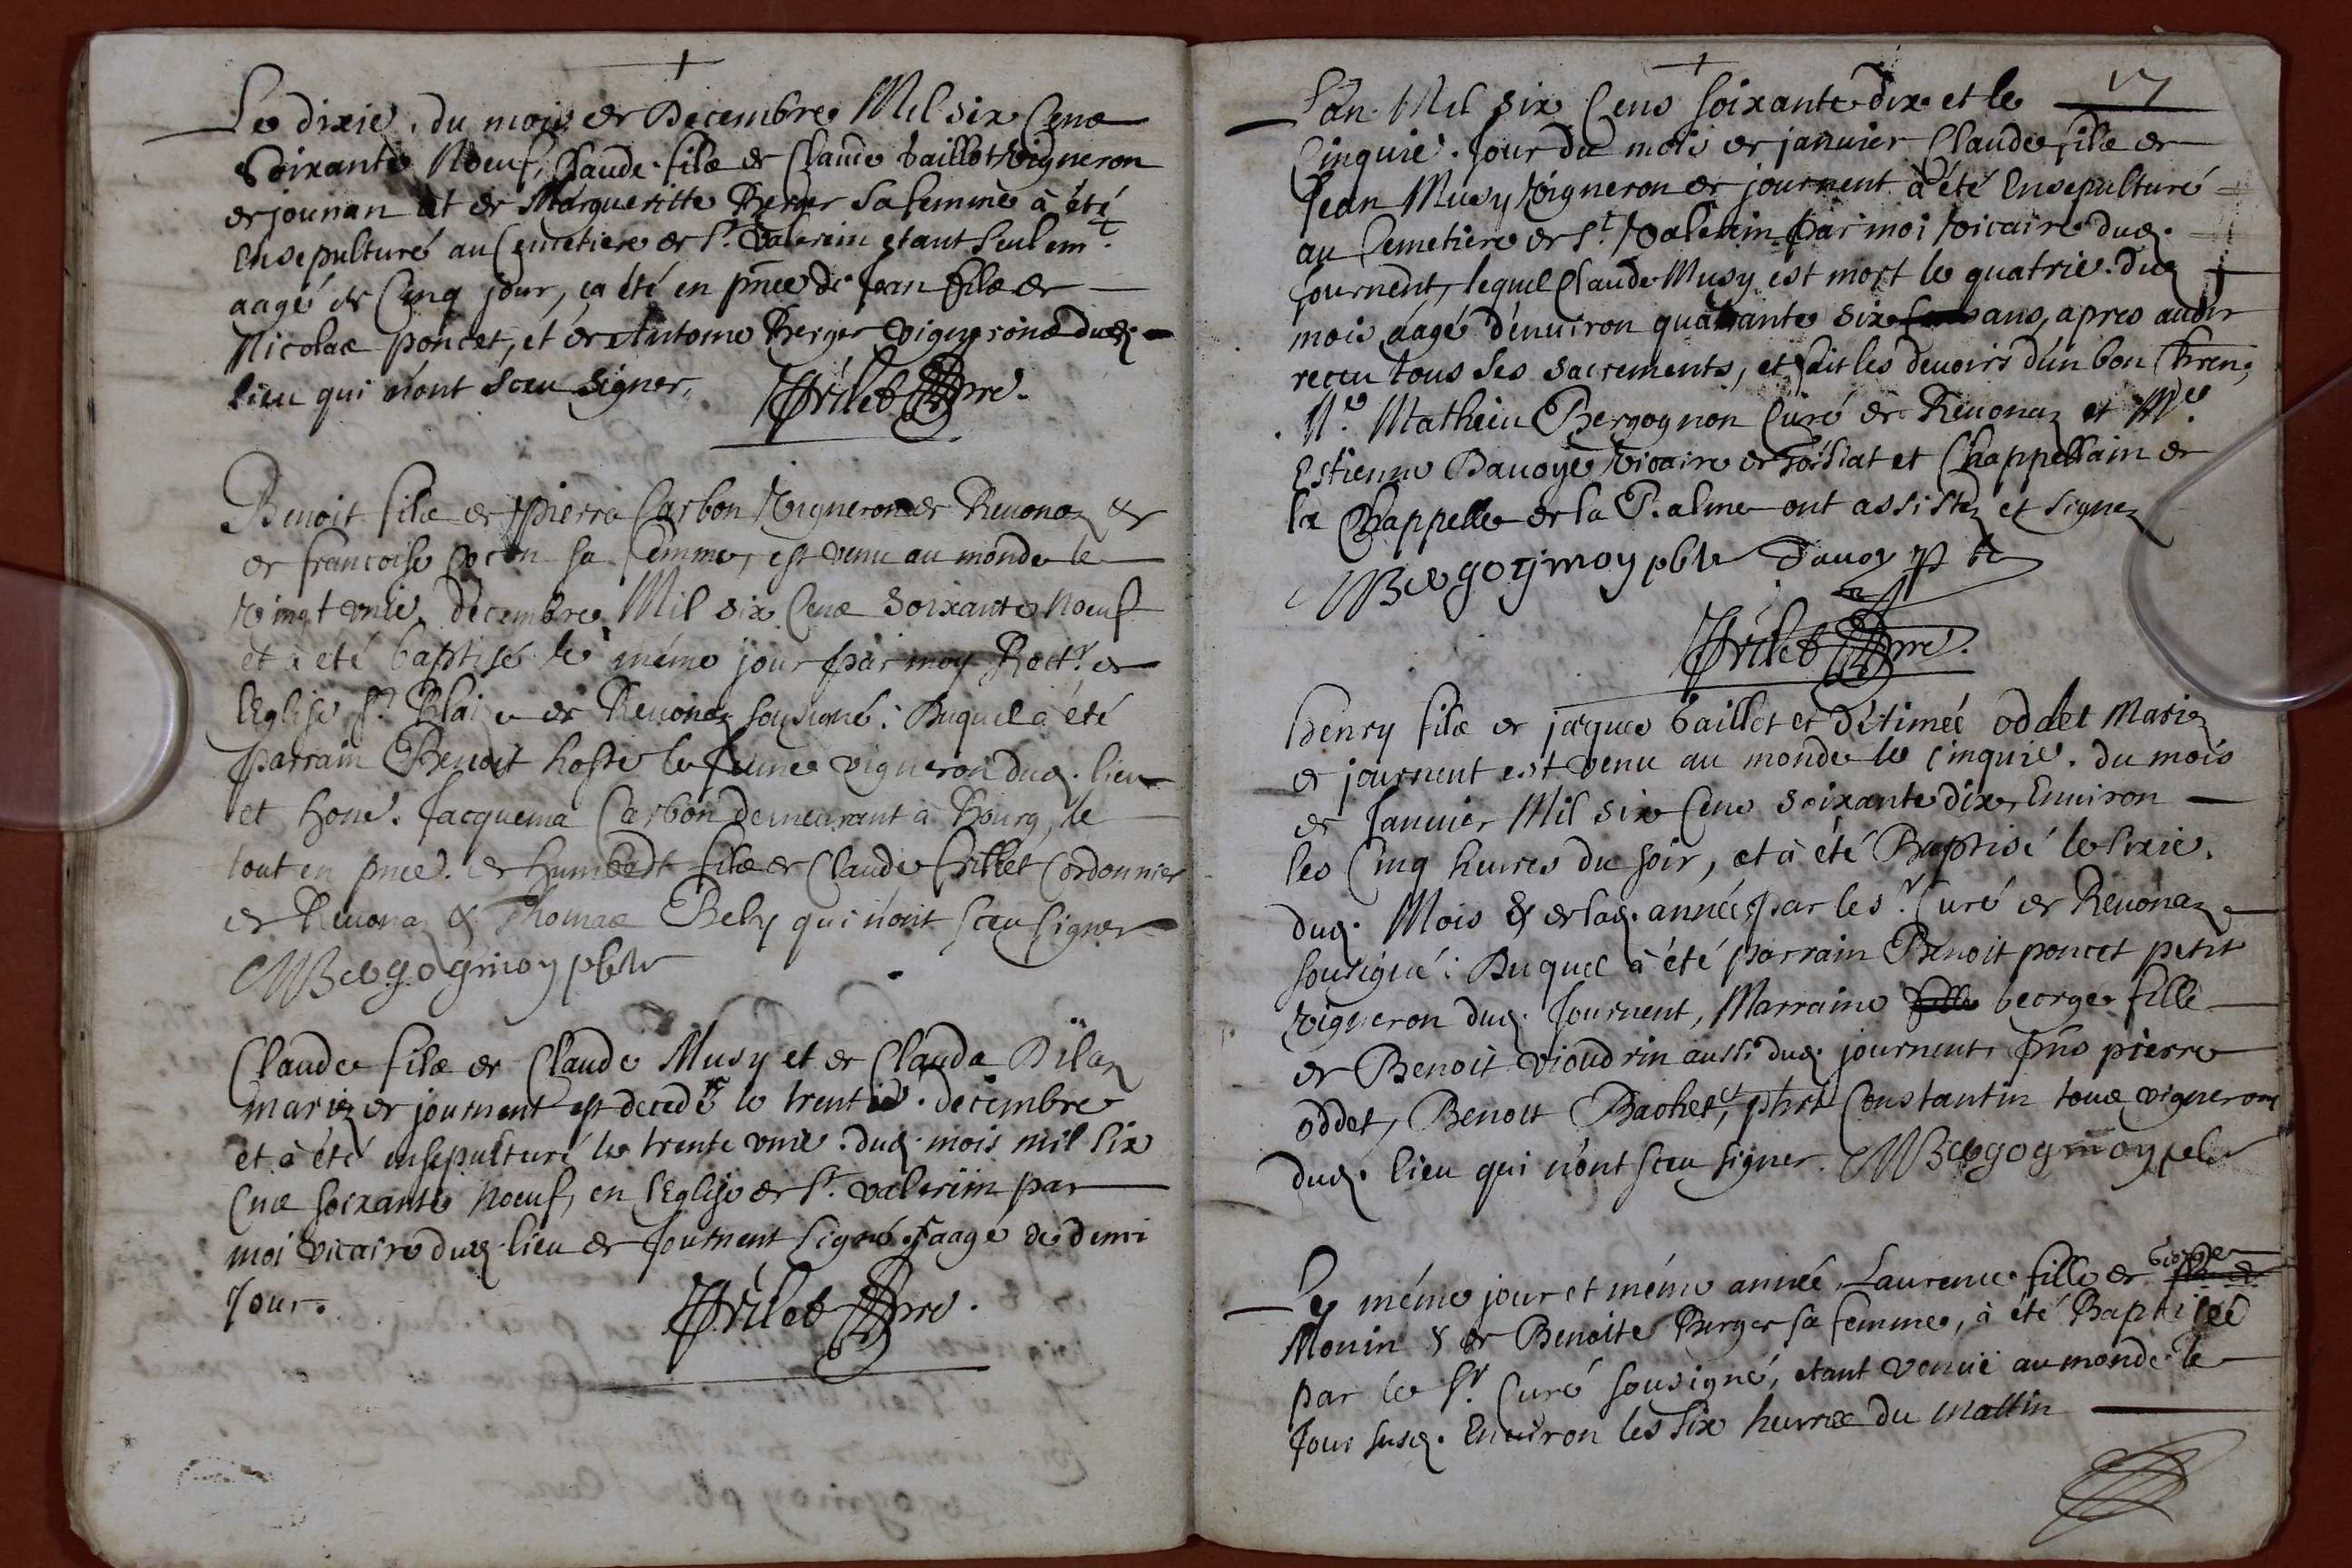 Le dixie. du mois de Decembre Mil six Cens
Soixante Noeuf, Claude fils de Claude Vaillot Vigneron
de jounan et de Margueritte Berger Sa femme à été
Ensepulturé au Cemetiere de St. Valerin etant Seulemt.
aagé de Cinq jour, ça été en pnce de Jean fils de
Nicolas poncet, et de Antoine Berger Vignerons dud.
lieu qui n'ont sceu signer,
Benoit fils de pierre Carbon Vigneron de Reuonaz &
de francoise sa femme, est venu au monde le
vingt vnie. decembre Mil six Cens soixante noeuf
et à eté baptisé le méme jour par moy Rectr. de
l'Eglise St. Blaise de Reuonaz sousigné: Duquel à été
parrain Benoit hoste le Jeune vigneron dud. lieu
et hone. Jacquema Carbon demeurant à Bourg, le
tout en pnce. de humbert fils de Claude Cordonnier
de Reuonaz & Thomas Bely qui n'ont sceu signer
MBergognion pbre
Claude fils de Claude Musy et de Clauda
mariez de journent est decedé le trentie. decembre
et à été ensepulturé le trente vnie. dud. mois mil six
Cens soixante noeuf, en l'Eglise de St. Valeriin par
moi vicaire dud. lieu de Journent signé, aagé de demi
Jour.
17
L'an Mil six Cens soixante dix et le
Cinquie. Jour du mois de januier Claude fils de
Jean Musy Vigneron de journent à été Ensepulturé
au Cemetiere de St. Valerin par moi vicaire dud.
Journent, lequel Claude Musy est mort le quatrie. dud.
mois aagé d'enuiron quarante six ans, apres auoir
receu tous ses sacrements, et fait les deuoirs d'un bon Chren,
Me. Mathieu Bergognon Curé de Reuonaz et Me.
Estienne Dauoye Vicaire de et Chappellain de
la Chappelle de la Palme ont assistez et signez
MBergognion pbre Dauoy
Henry fils de jacques Vaillot et d'étimée oddet Mariez
de journent est venu au monde le cinquie. du mois
de Januier Mil six Cens soixante dix, Enuiron
les Cinq heures du soir, et à été Baptisé le sixie.
dud. Mois & de lad. année par le Sr. Curé de Reuonaz
sousigné: Duquel à été parrain Benoit poncet petit
Vigneron dud. Journent, Marraine george fille
de Benoit vioudrin aussi dud. journent, pns pierre
oddet, Benoit Bachet, phrt Constantin tous vignerons
dud. lieu qui n'ont sceu signer. MBergognion pbre
Le méme jour et méme année, Laurence fille de George
Monin & de Benoite Berger sa femme, à été Baptisée
par le Sr. Curé sousigné, étant venue au monde le
Jour susd. Enuiron les six heures du mattin